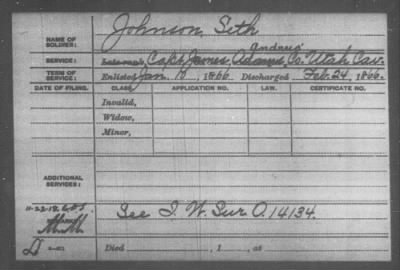 NAME OF SOLDIER: Johnson, Seth
Andrus'
SERVICE: Late rank, Capt. James Adams Co. Utah Cav.
TERM OF SERVICE: Enlisted Jan. 10, 1866. Discharged Feb. 24, 1866.
DATE OF FILING. CLASS. APPLICATION NO. LAW. CERTIFICATE NO.
Invalid,
Widow,
Minor,
ADDITIONAL SERVICES:
See I. W. Sur O. 14134.
D
Died , 1 , at